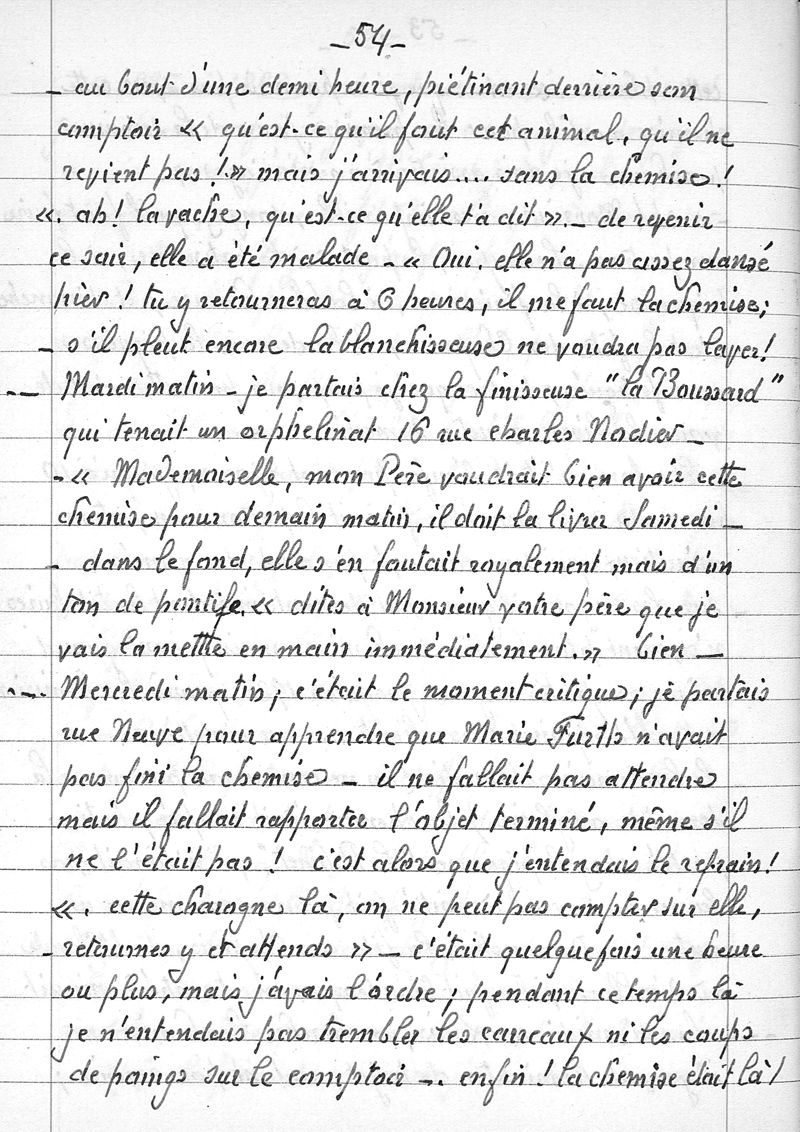 _ 54 _
_ au bout d'une demi heure, piétinant derrière son
comptoir « qu'est-ce qu'il fout cet animal, qu'il ne
revient pas ! » mais j'arrivais.... sans la chemise !
«. ah ! la vache, qu'est-ce qu'elle t'a dit ». _ de revenir
ce soir, elle a été malade _ « Oui. elle n'a pas assez dansé
hier ! tu y retourneras à 6 heures, il me faut la chemise ;
_ s'il pleut encore la blanchisseuse ne voudra pas laver !
__ Mardi matin _ je partais chez la finisseuse "la Boussard"
qui tenait un orphelinat 16 rue charles Nodier _
_ « Mademoiselle, mon Père voudrait bien avoir cette
chemise pour demain matin, il doit la livrer Samedi _
_ dans le fond, elle s'en foutait royalement mais d'un
ton de pontife. « dites à Monsieur votre père que je
vais la mettre en main immédiatement. » bien _
._. Mercredi matin ; c'était le moment critique ; je partais
rue Neuve pour apprendre que Marie Furth n'avait
pas fini la chemise _ il ne fallait pas attendre
mais il fallait rapporter l'objet terminé, même s'il
ne l'était pas ! c'est alors que j'entendais le refrain !
«. cette charogne là, on ne peut pas compter sur elle,
_ retournes y et attends » _ c'était quelquefois une heure
ou plus, mais j'avais l'ordre ; pendant ce temps là
je n'entendais pas trembler les carreaux ni les coups
de poings sur le comptoir _. enfin ! la chemise était là !